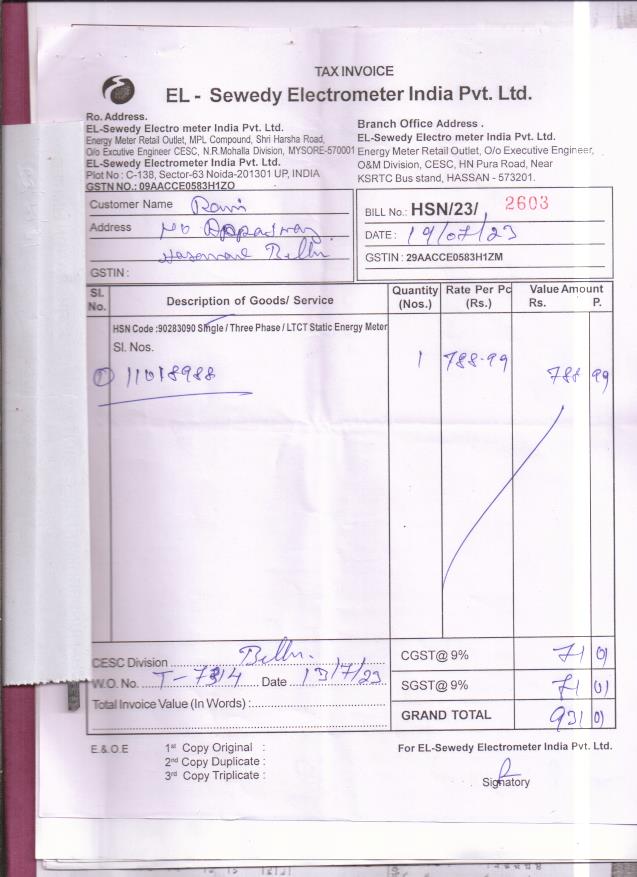 TAX INVOICE
EL - Sewedy Electrometer India Pvt. Ltd.
Ro. Address.
EL-Sewedy Electro meter India Pvt. Ltd.
Energy Meter Retail Outlet, MPL Compound, Shri Harsha Road,
O/o Excutive Engineer CESC, N.R.Mohalla Division, MYSORE-570001
EL-Sewedy Electrometer India Pvt. Ltd.
Plot No : C-138, Sector-63 Noida-201301 UP, INDIA
GSTN NO.: 09AACCE0583H1ZO
Branch Office Address .
EL-Sewedy Electro meter India Pvt. Ltd.
Energy Meter Retail Outlet, O/o Executive Engineer,
O&M Division, CESC, HN Pura Road, Near
KSRTC Bus stand, HASSAN - 573201.
Customer Name Ravi
Address
GSTIN :
BILL No.: HSN/23/ 2603
DATE : 19/07/23
GSTIN : 29AACCE0583H1ZM
Sl. No. Description of Goods/ Service Quantity (Nos.) Rate Per Pc (Rs.) Value Amount Rs. P.
HSN Code :90283090 Single / Three Phase / LTCT Static Energy Meter
Sl. Nos.
① 11018988 1 788-99 788 99
CESC Division
W.O. No. T-7314 Date 13/7/23
Total Invoice Value (In Words) :
CGST@ 9% 71 01
SGST@ 9% 71 01
GRAND TOTAL 931 01
E.& O.E
1st Copy Original :
2nd Copy Duplicate :
3rd Copy Triplicate :
For EL-Sewedy Electrometer India Pvt. Ltd.
Signatory